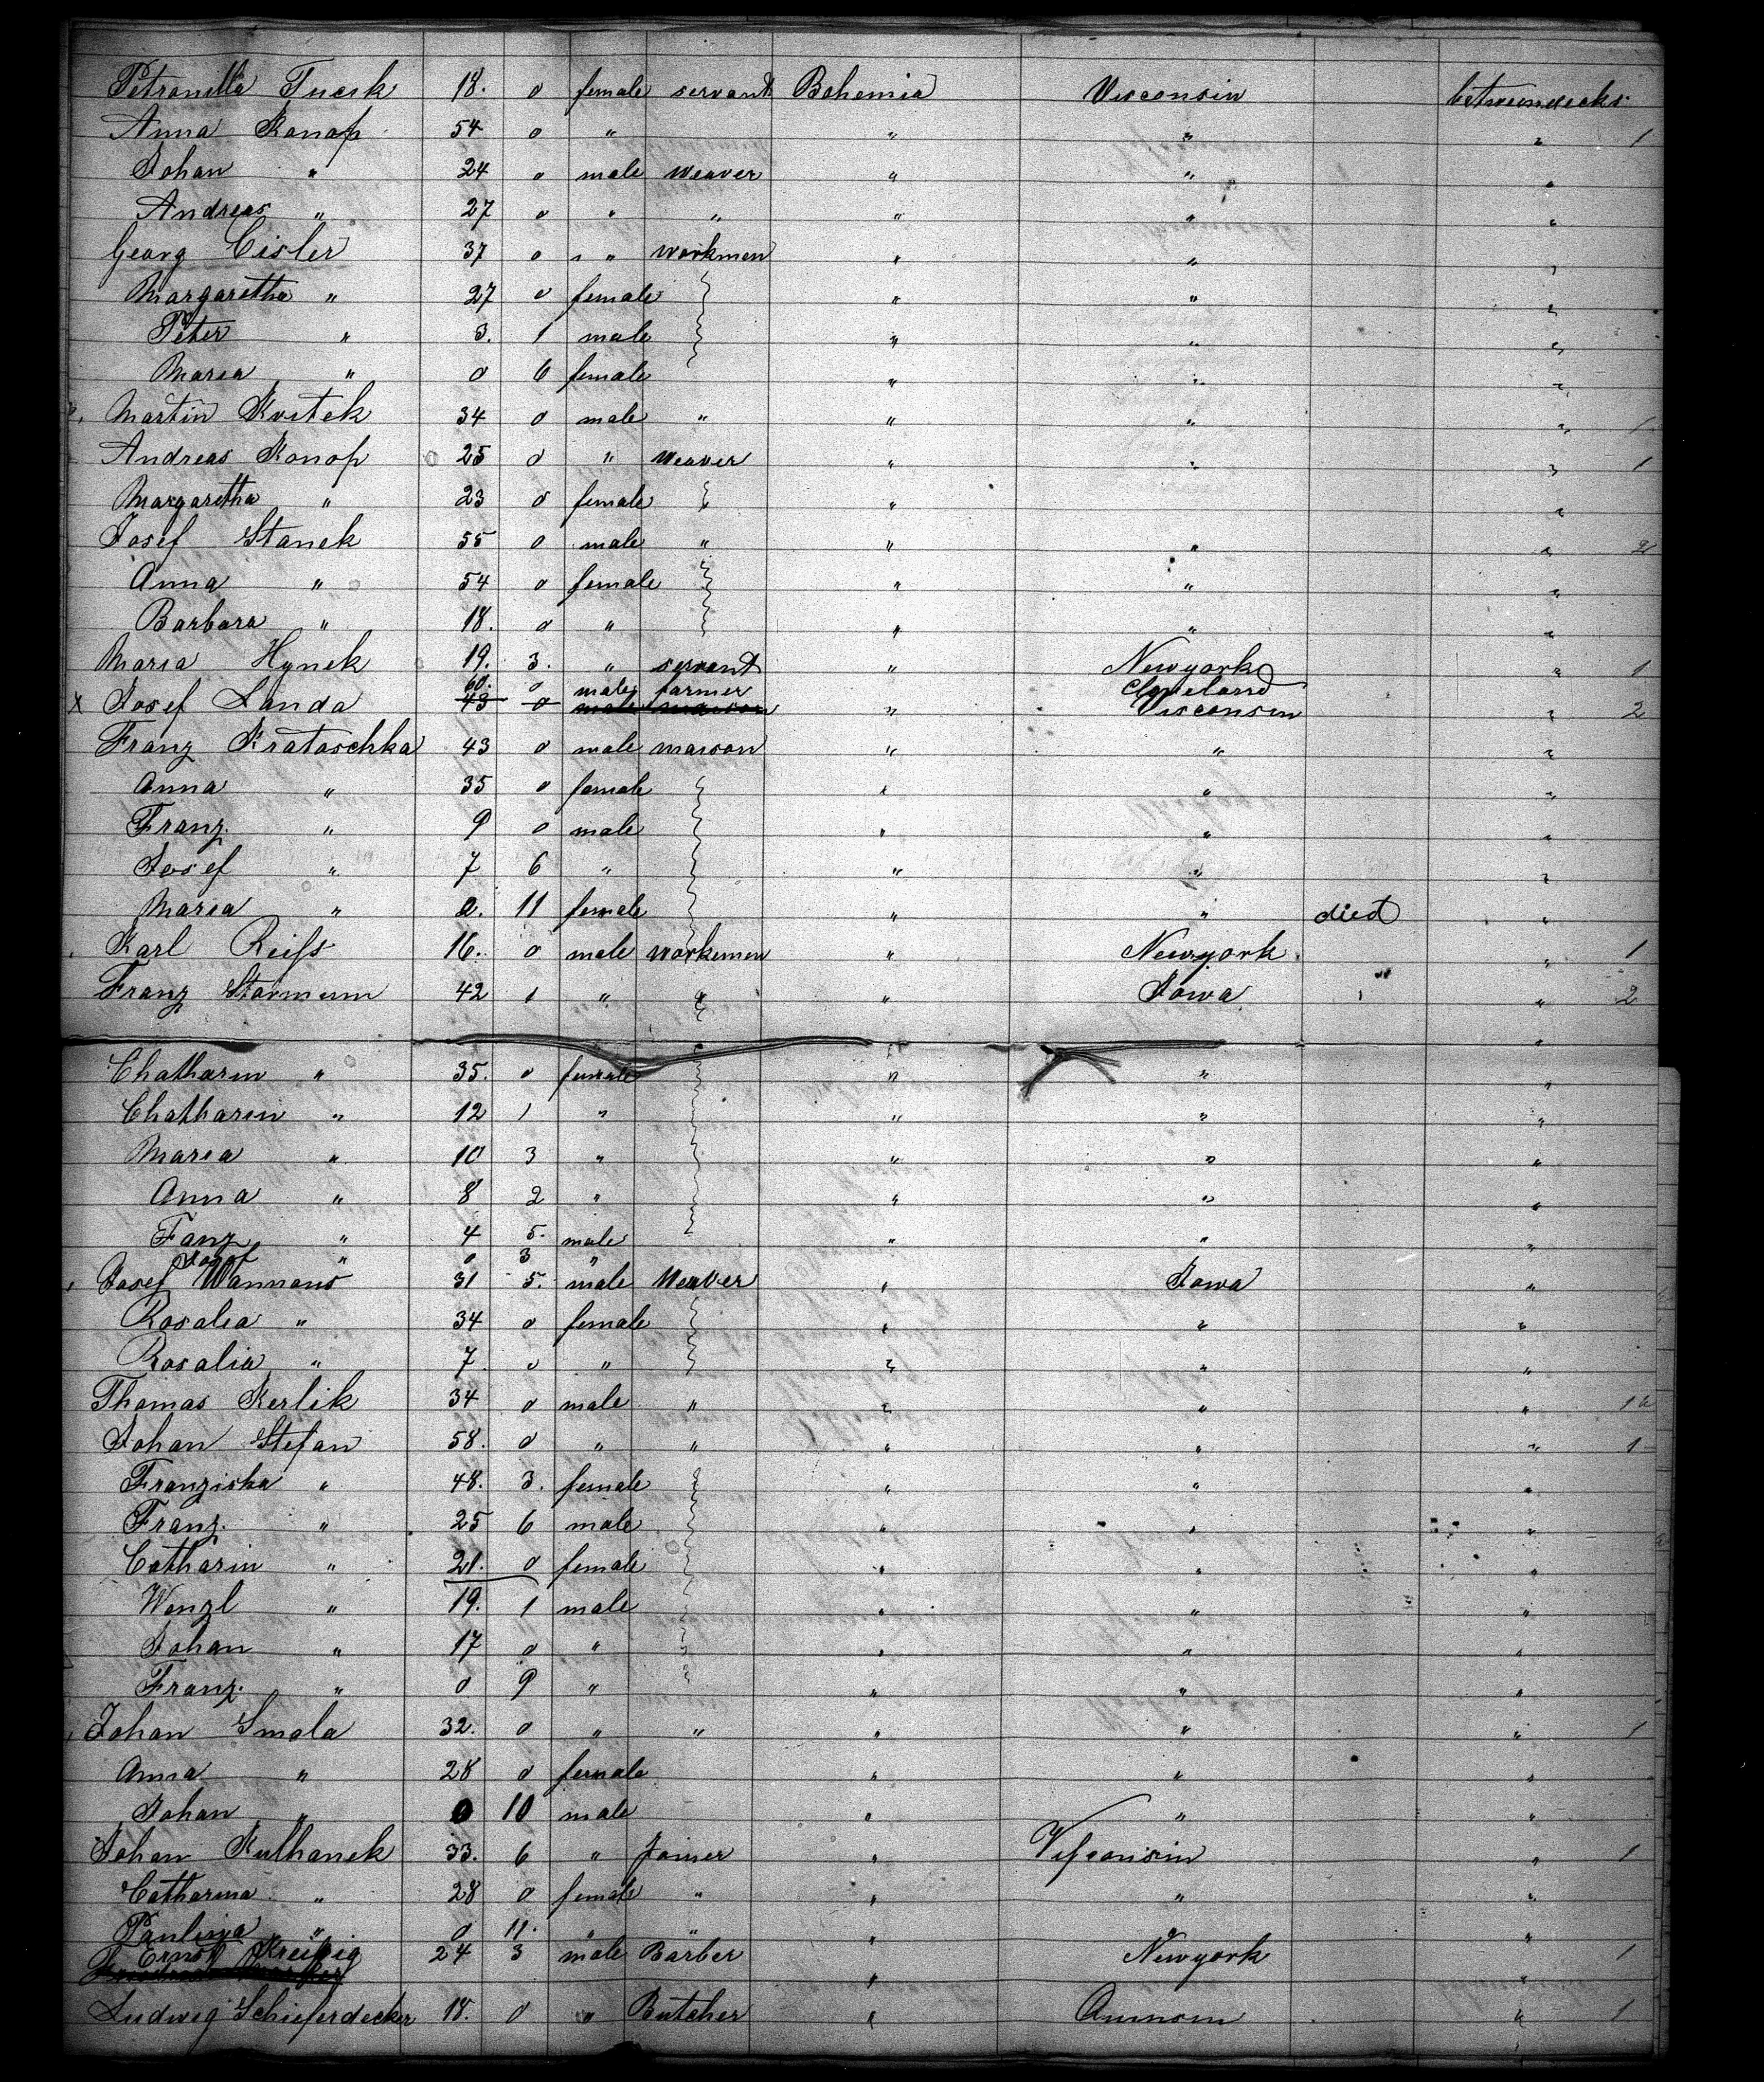 Petronilla Tucik 18. 0 female servant Bohemia Visconsin betweendecks
Anna Konop 54 0 " " " " 1
Johan " 24 0 male weaver " " "
Andreas " 27 0 " " " " "
Georg Cisler 37 0 " " workmen " " "
Margaretha " 27 0 female " " "
Peter " 3. 1 male " " "
Maria " 0 6 female " " "
Martin Kvitek 34 0 male " " " " 1
Andreas Konop 25 0 " weaver " " " 1
Margaretha " 23 0 female " "
Josef Stanek 55 0 male " " " " 2
Anna " 54 0 female " " "
Barbara " 18. 0 " " " "
Maria Hynek 19. 3. " servant " Newyork " 1
60. 0 male farmer Cleveland
x Josef Landa 43 0 male marson " Visconsin " 2
Franz Krataschka 43 0 male marson " " "
Anna " 35 0 female " " "
Franz. " 9 0 male " " "
Josef " 7 6 " " " "
Maria " 2. 11 female " " died "
Karl Reifs 16. 0 male workemen " Newyork " 1
Franz Starmum 42 1 " " " Iowa " 2
"
Chatharin " 35. 0 female " " "
Chatharin " 12 1 " " " "
Maria " 10 3 " " " "
Anna " 8 2 " " " "
Fanz " 4 5. male " " "
Josef " 0 3 "
Josef Wannous 31 5. male Weaver " Iowa "
Rosalia " 34 0 female " " "
Rosalia " 7 0 " " " "
Thomas Kerlik 34 0 male " " " "
Johan Stefan 58. 0 " " " " " 1
Franziska " 48. 3. female " " "
Franz. " 25 6 male " " "
Catharin " 21. 0 female " " "
Wenzl " 19. 1 male " " "
Johan " 17 0 " " " "
Franz. " 0 9 " " " "
Johan Smala 32. 0 " " " " " 1
Anna " 28 0 female " " "
Johan " 0 10 male " " "
Johan Kulhanek 33. 6 " Joiner " Visconsin " 1
Catharina " 28 0 female " " " "
Paulina " 0 11. " " " "
Ernst Kreisig 24 3 male Barber Newyork 1
Ludwig Schieferdecker 18. 0 " Butcher " " 1